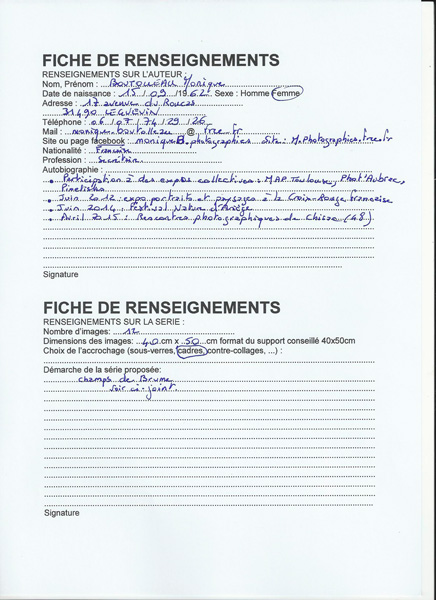 FICHE DE RENSEIGNEMENTS
RENSEIGNEMENTS SUR L'AUTEUR :
Nom, Prénom : BOUTOLLEAU Monique
Date de naissance : 15 / 09 /1962 Sexe : Homme Femme
Adresse : 17 avenue du Roucas
31490 LEGUEVIN
Téléphone : 06 / 07 / 74 / 29 / 26
Mail : monique.boutolleau @ free.fr
Site ou page facebook : moniqueB.photographies Site: M.Photographies.free.fr
Nationalité : Française
Profession : Secrétaire
Autobiographie :
• Participation à des expos collectives : MAP Toulouse, Phot'Aubrac,
• Juin 2012 : expo portraits et paysages à la Croix-Rouge française
• Juin 2014 : Festival Nature d'Ariège
• Avril 2015 : Rencontres photographiques de Chisse (48).
Signature
FICHE DE RENSEIGNEMENTS
RENSEIGNEMENTS SUR LA SERIE :
Nombre d'images: 12
Dimensions des images: 40 cm x 50 cm format du support conseillé 40x50cm
Choix de l'accrochage (sous-verres, cadres, contre-collages, ...) :
Démarche de la série proposée:
champs de Brume
voir ci-joint.
Signature